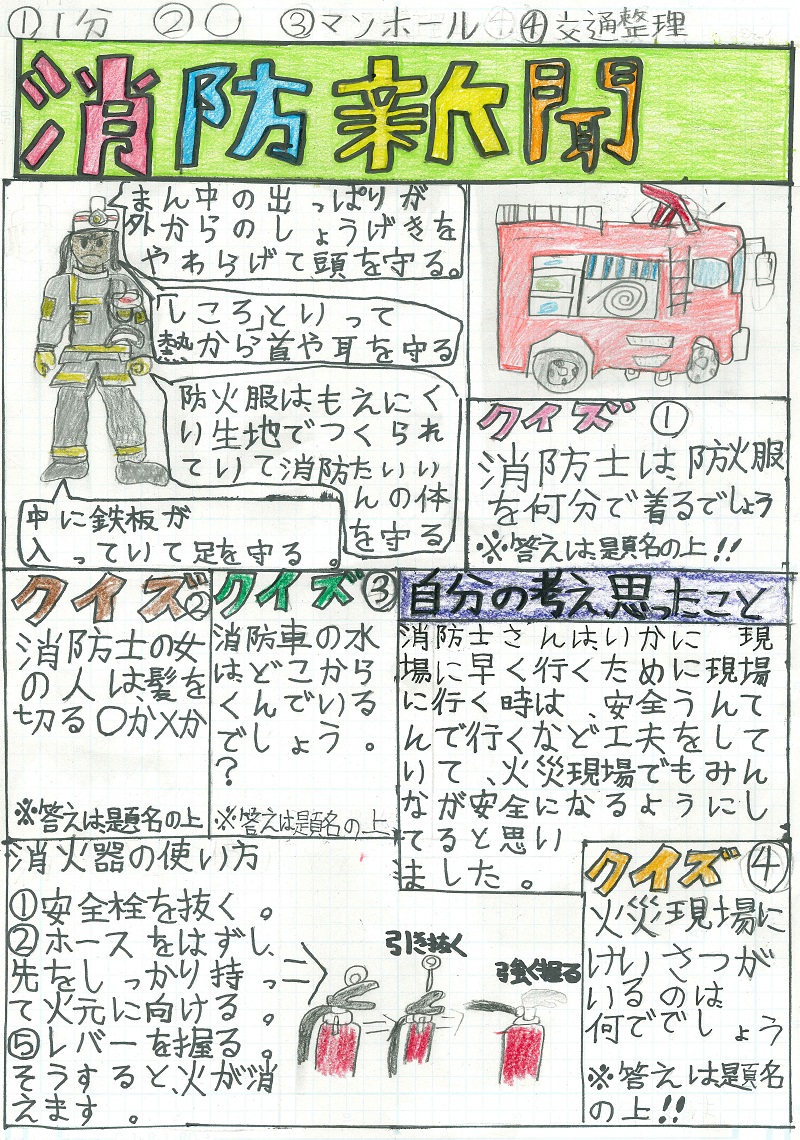 ①1分 ②○ ③マンホール ④交通整理
消防新聞
まん中の出っぱりが
外からのしょうげきを
やわらげて頭を守る。
「しころ」といって
熱から首や耳を守る
防火服は、もえにく
い生地でつくられ
ていて消防たいい
んの体
を守る
中に鉄板が
入っていて足を守る。
クイズ①
消防士は、防火服
を何分で着るでしょう
※答えは題名の上!!
クイズ②
消防士の女
の人は髪を
切る○か×か
※答えは題名の上
クイズ③
消防車の水
はどこから
くんでいる
でしょう。
?
※答えは題名の上
自分の考え、思ったこと
消防士さんはいかに現
場に早く行くために現場
に行く時は、安全うんて
んで行くなど工夫をして
いて、火災現場でもみん
なが安全になるようにし
てると思い
ました。
消火器の使い方
①安全栓を抜く。
②ホースをはずし、
先をしっかり持っ
て火元に向ける。
⑤レバーを握る。
そうすると、火が消
えます。
引き抜く
強く握る
クイズ④
火災現場に
けいさつが
いるのは
何ででしょう
※答えは題名
の上!!